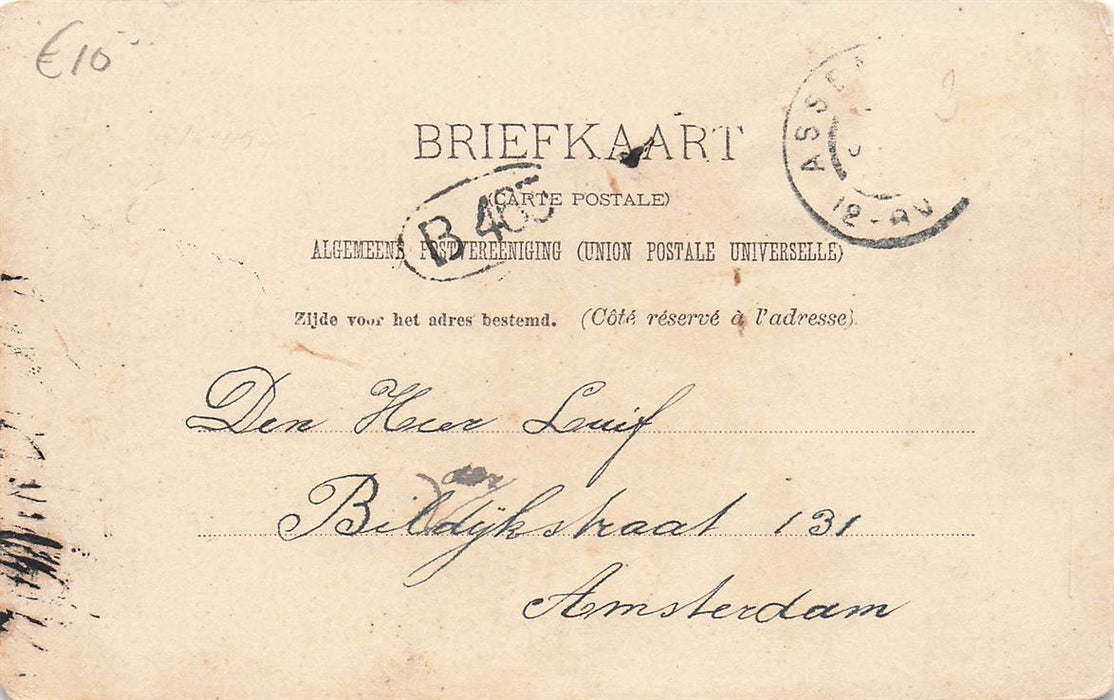 €10
BRIEFKAART
(CARTE POSTALE)
B 465
ALGEMEENE POSTVEREENIGING (UNION POSTALE UNIVERSELLE)
Zijde voor het adres bestemd. (Côté réservé à l'adresse).
ASSEN
Den Heer Luif
der
Bildijkstraat 131
Amsterdam